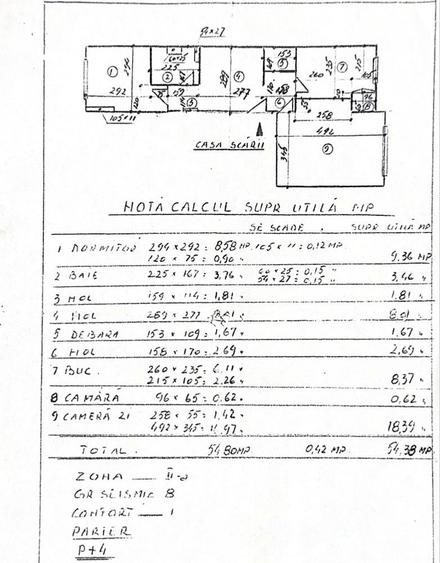 54×27
294
292
120
105×11
60×25
225
2
3
159
4
289
277
153
5
6
260
235
7
215
105
96
8
55
258
492
345
9
CASA SCĂRII
NOTĂ CALCUL SUPR UTILĂ MP
SE SCADE . SUPR UTILĂ MP
1 DORMITOR 294×292 = 8,58 MP. 105×11 = 0,12 MP
120 × 75 = 0,90 " 9,36 MP
2 BAIE 225×167 = 3,76 " 60×25 = 0,15 "
54×27 = 0,15 " 3,46 "
3 HOL 159 × 114 = 1,81 " 1,81 "
4 HOL 289 × 277 8,01 " 8,01 "
5 DEBARA 153 × 109 = 1,67 " 1,67 "
6 HOL 158 × 170 = 2,69 " 2,69 "
7 BUC. 260 × 235 = 6,11 "
215 × 105 = 2,26 " 8,37 "
8 CAMĂRĂ 96 × 65 = 0,62 " 0,62 "
9 CAMERĂ ZI 258 × 55 = 1,42 "
492 × 345 = 16,97 " 18,39 "
TOTAL . 54,80 MP 0,42 MP 54,38 MP
ZONA — II-a
GR SEISMIC 8
CONFORT — I
PARTER
P+4